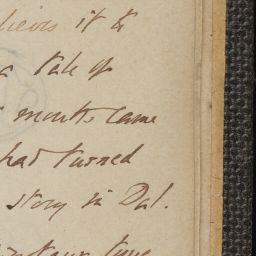 it to
a tale of
months came
had turned
story in Dul.